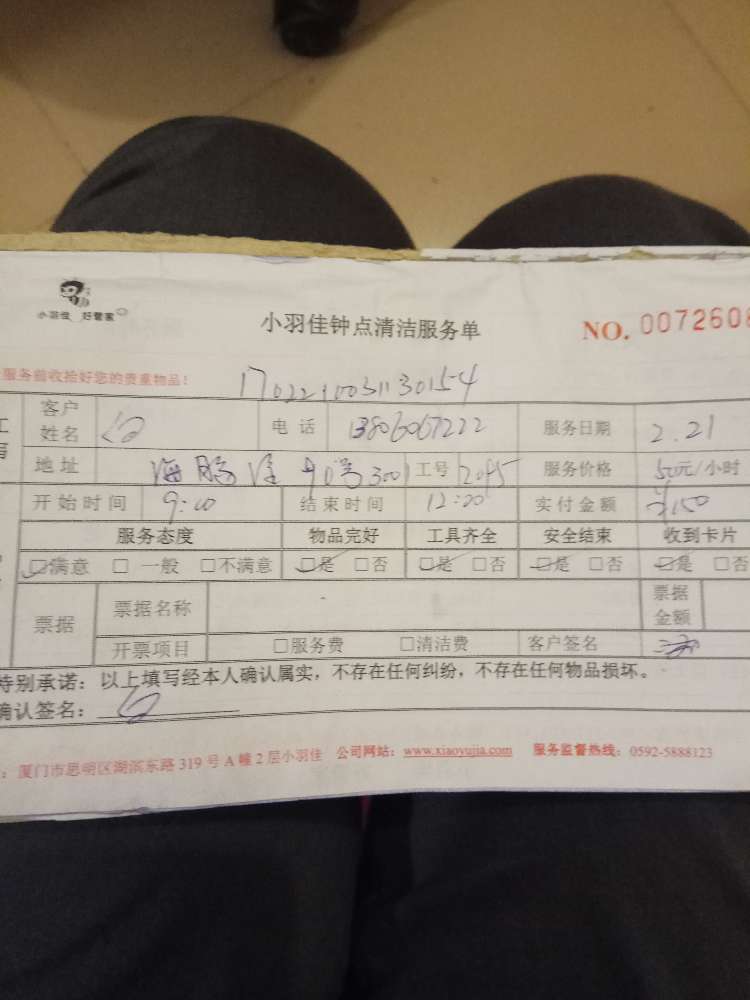 小羽佳 好管家
小羽佳钟点清洁服务单
NO. 0072608
服务前收拾好您的贵重物品!
1702210031130154
客户姓名 电话 服务日期 2.21
地址 90号3001 工号 2095 服务价格 50元/小时
开始时间 9:00 结束时间 12:00 实付金额 ¥150
服务态度 物品完好 工具齐全 安全结束 收到卡片
☑满意 □一般 □不满意 ☑是 □否 ☑是 □否 ☑是 □否 ☑是 □否
票据 票据名称 票据金额
开票项目 □服务费 □清洁费 客户签名
特别承诺:以上填写经本人确认属实,不存在任何纠纷,不存在任何物品损坏。
确认签名:
:厦门市思明区湖滨东路 319 号 A 幢 2 层小羽佳 公司网站:www.xiaoyujia.com 服务监督热线:0592-5888123